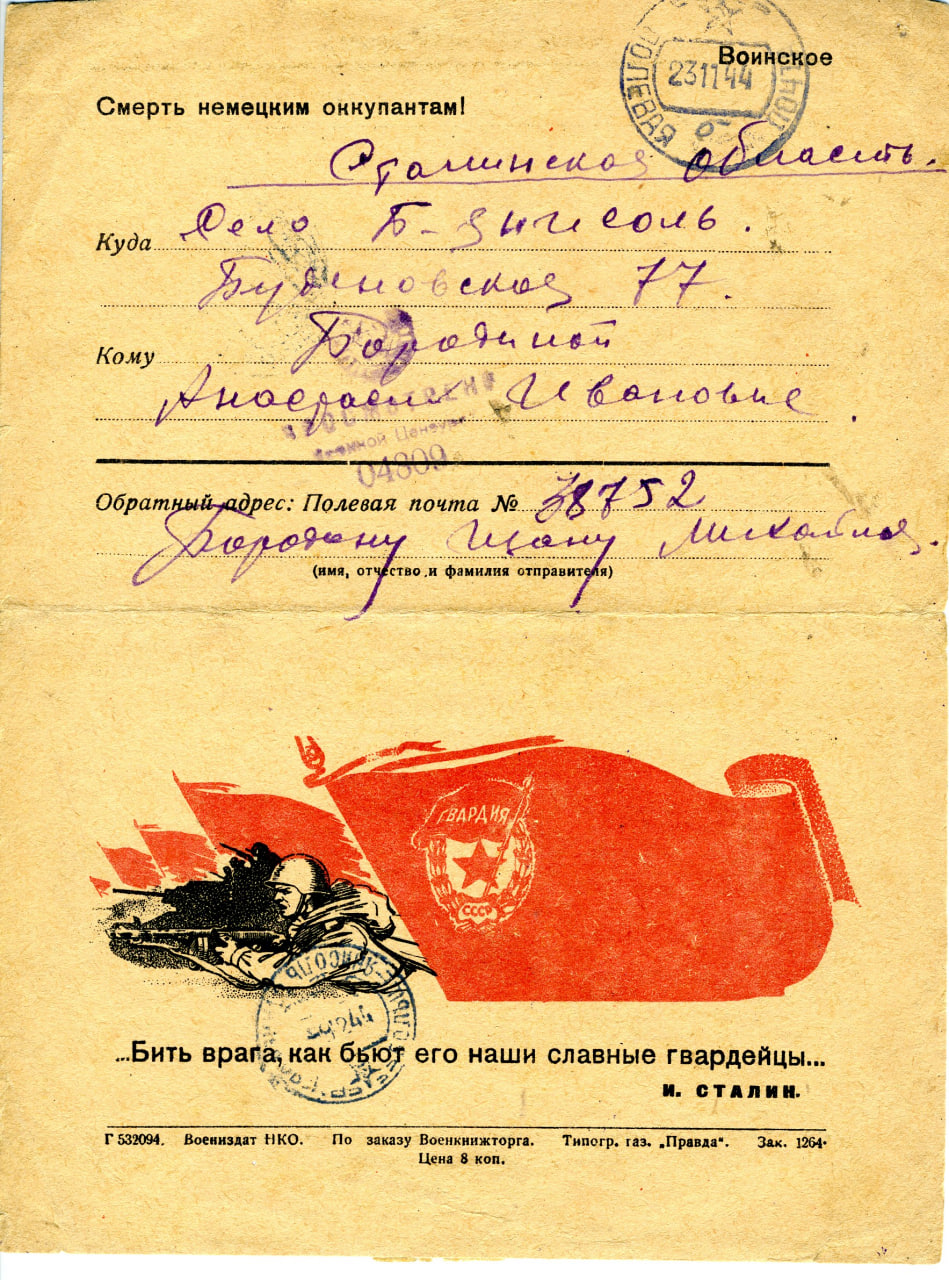 Воинское
23 11 44
ПОЛЕВАЯ ПОЧТА
Смерть немецким оккупантам!
Сталинская область.
Куда Село Б-Янисоль.
77.
Кому Бородиной
Анастасии Ивановне.
ПРОСМОТРЕНО
Военной Цензурой
04809
Обратный адрес: Полевая почта № 38752
Бородину Ивану Михайлов.
(имя, отчество и фамилия отправителя)
ГВАРДИЯ
СССР
ЯНИСОЛЬ
...Бить врага, как бьют его наши славные гвардейцы...
И. СТАЛИН.
Г 532094. Воениздат НКО. По заказу Военкнижторга. Типогр. газ. „Правда“. Зак. 1264.
Цена 8 коп.